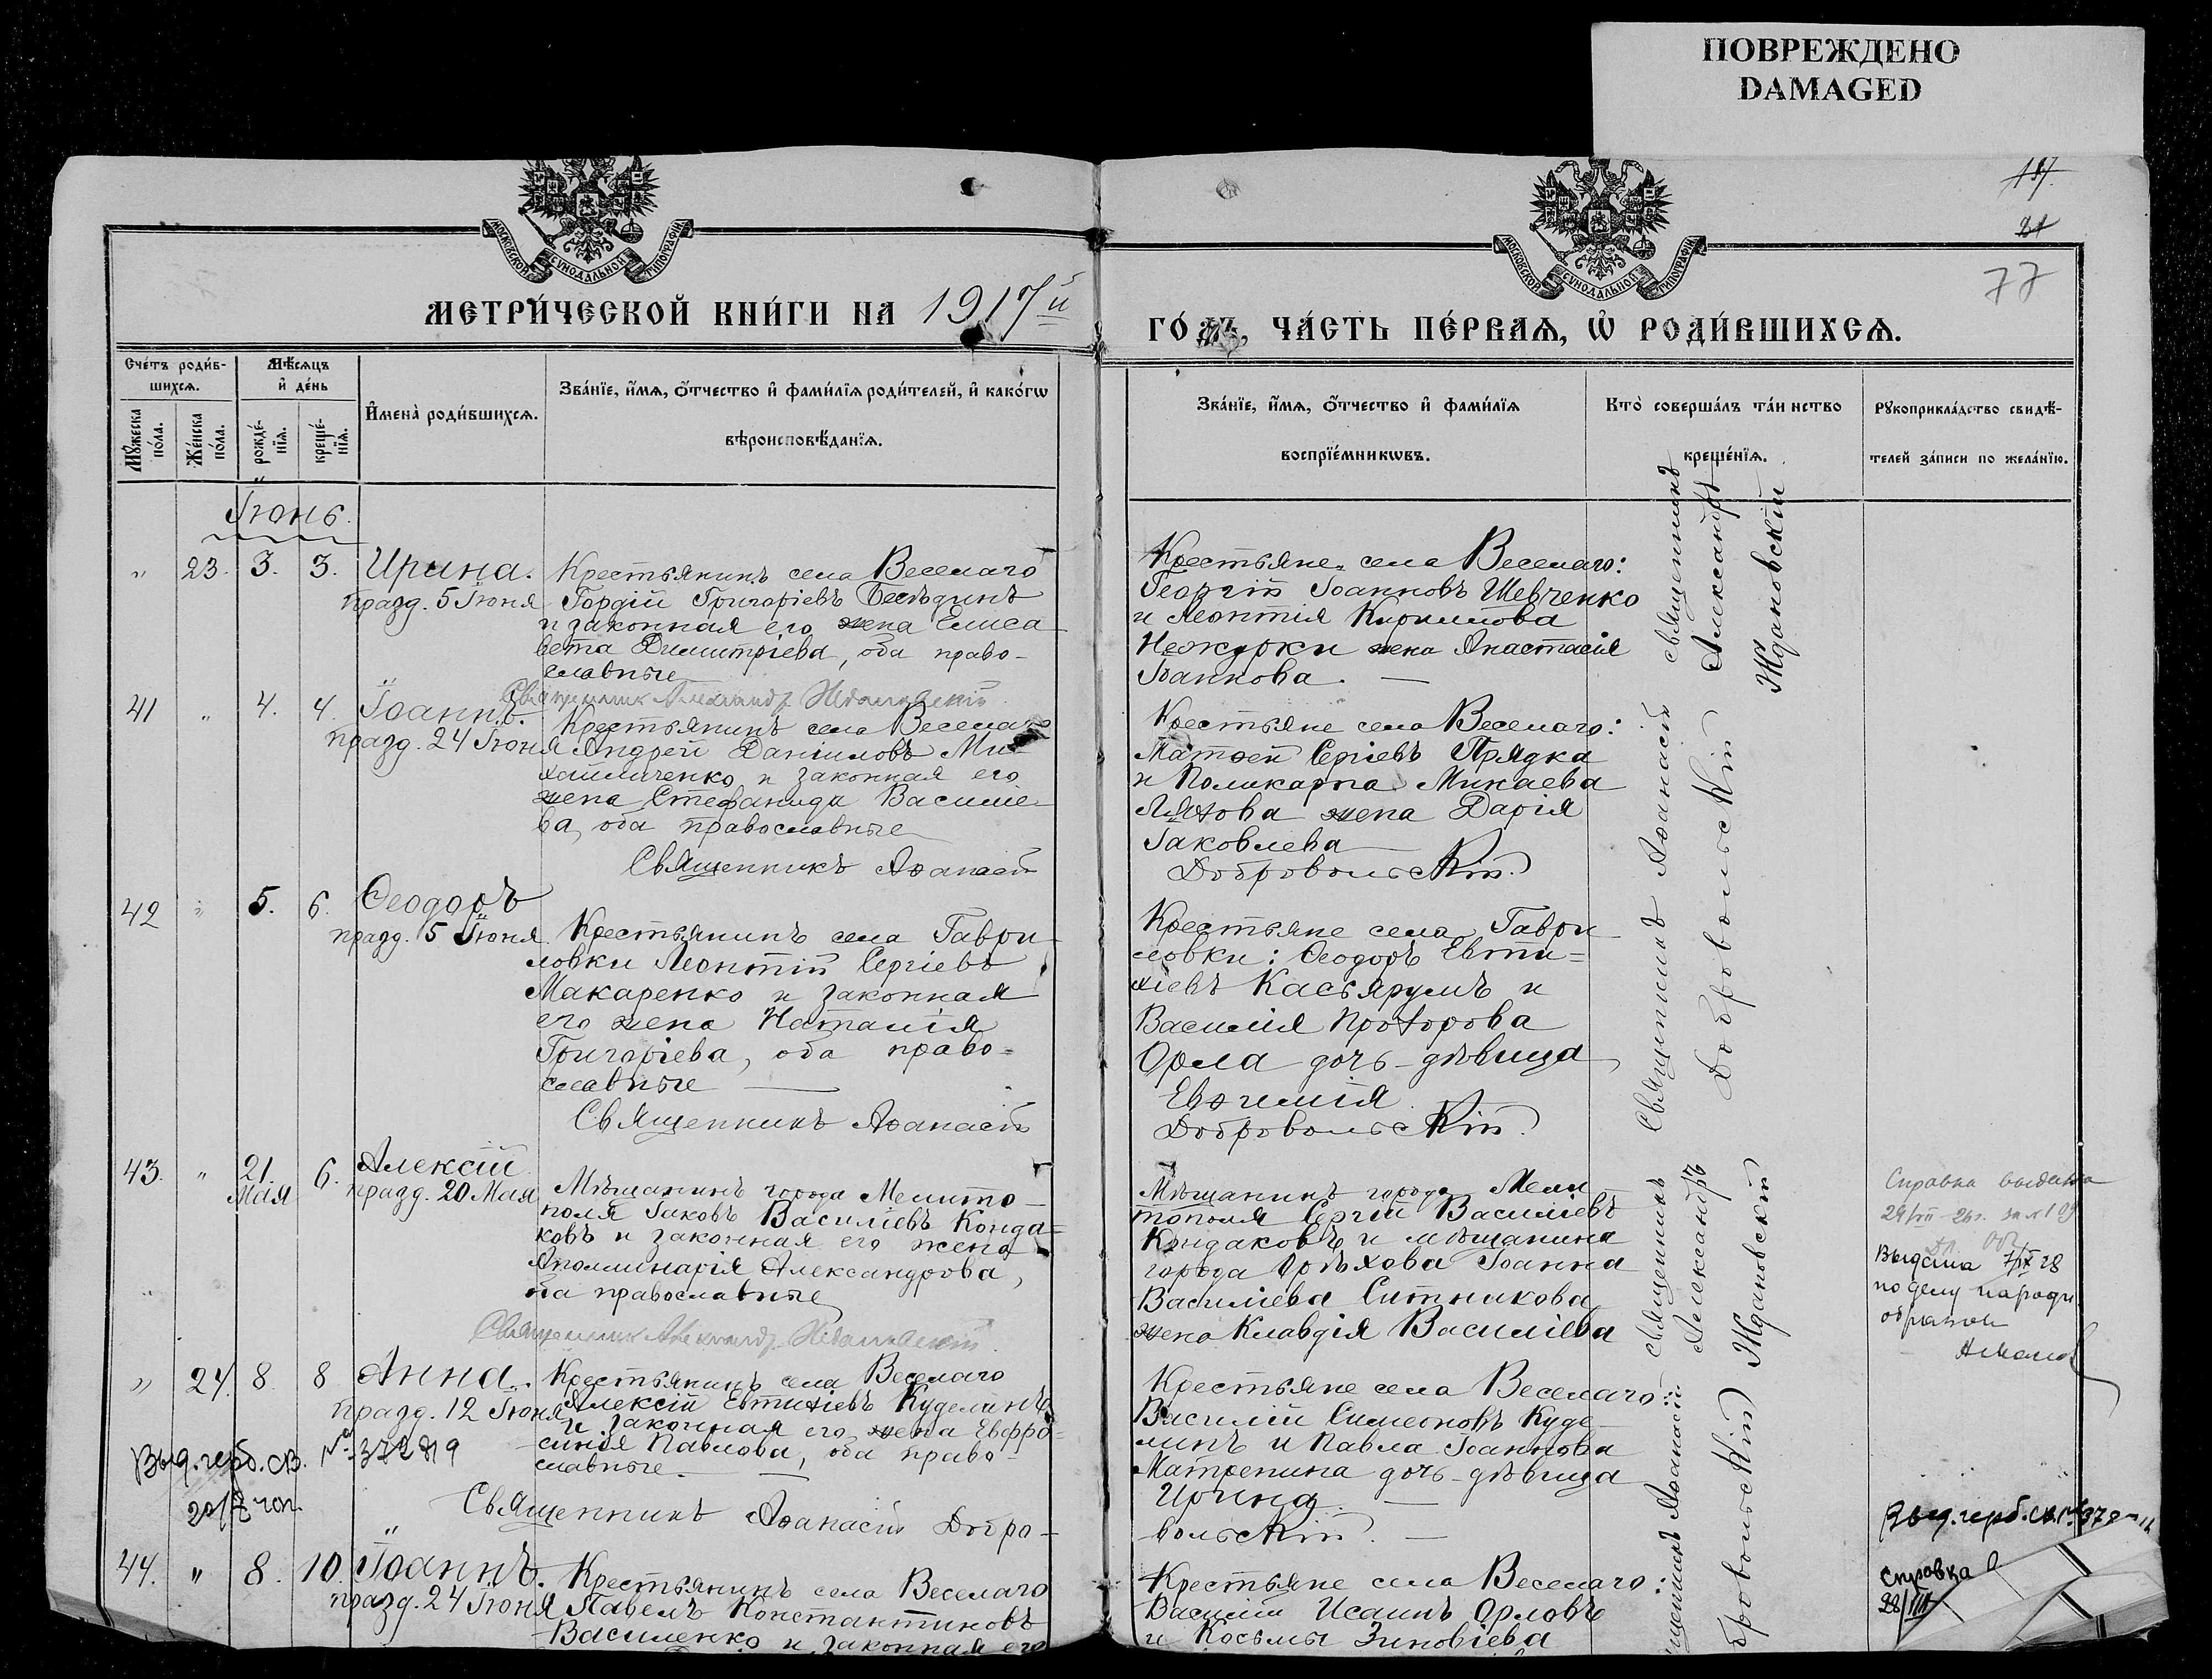 ПОВРЕЖДЕНО
DAMAGED
МОСКОВСКОЙ СѴНОДАЛЬНОЙ ТИПОГРАФІИ
МОСКОВСКОЙ СѴНОДАЛЬНОЙ ТИПОГРАФІИ
77
МЕТРИ́ЧЕСКОЙ КНИ́ГИ НА 1917й
ГО́ДЪ, ЧА́СТЬ ПЕ́РВАѦ, Ѡ҆ РОДИ́ВШИХСѦ.
Сче́тъ роди́в-
шихсѧ.
Мѣ́сѧцъ
и҆ де́нь
Мꙋ́жеска
по́ла.
Же́нска
по́ла.
рожде́-
нїѧ.
креще́-
нїѧ.
И҆мена̀ роди́вшихсѧ.
Зва́нїе, и҆́мѧ, ѻ҆́тчество и҆ фами́лїѧ роди́телей, и҆ како́гѡ
вѣроисповѣ́данїѧ.
Зва́нїе, и҆́мѧ, ѻ҆́тчество и҆ фами́лїѧ
воспрїе́мникѡвъ.
Кто̀ соверша́лъ та́инство
креще́нїѧ.
Рꙋкоприкла́дство свидѣ́-
телей за́писи по жела́нїю.
Іюнь.
„ 23. 3. 3. Ирина.
празд. 5 Іюня
Крестьянинъ села Веселаго
Гордій Григоріевъ Бесѣдинъ
и законная его жена Елиса
вета Димитріева, оба право-
славные
Священник Александр Ждановскій
Крестьяне села Веселаго:
Георгій Іоанновъ Шевченко
и Леонтія Кирилова
Нежурки жена Анастасія
Іоаннова.
священникъ
Александръ
Ждановскій
41 „ 4. 4. Іоаннъ.
празд. 24 Іюня
Крестьянинъ села Веселаго
Андрей Даніиловъ Ми
хайличенко и законная его
жена Стефанида Василіе
ва, оба православные
Священникъ Аѳанасій
Крестьяне села Веселаго:
Матѳей Сергіевъ Прядка
и Поликарпа Михаева
Ляхова жена Дарія
Іаковлева
Добровольскій.
Священникъ Аѳанасій
Добровольскій
42 „ 5. 6. Ѳеодоръ
празд. 5 Іюня.
Крестьянинъ села Гаври
ловки Леонтій Сергіевъ
Макаренко и законная
его жена Наталія
Григоріева, оба право=
славные
Священникъ Аѳанасій
Крестьяне села Гаври
ловки: Ѳеодоръ Евти=
хіевъ Касьярумъ и
Василія Прохорова
Орла дочь-дѣвица
Евѳимія.
Добровольскій.
43. „ 21. Мая 6. Алексій
празд. 20 Мая
Мѣщанинъ города Мелито-
поля Іаковъ Василіевъ Конда=
ковъ и законная его жена
Аполлинарія Александрова,
оба православные
Священник Александр Ждановскій.
Мѣщанинъ города Мели
тополя Сергій Василіевъ
Кондаковъ и мѣщанина
города Орѣхова Іоанна
Василіева Ситникова
жена Клавдія Василіева
священникъ
Александръ
Ждановскій
Справка выдана
Выдана 7/IX 28
по делу народн
образов
„ 24. 8 8 Анна.
празд. 12 Іюня
Крестьянинъ села Веселаго
Алексій Евтихіевъ Куделинъ
и законная его жена Евфро=
синія Павлова, оба право-
славные.
Выд. герб. св. № 372819
Священникъ Аѳанасій Добро-
Крестьяне села Веселаго:
Василій Симеоновъ Куде-
линъ и Павла Іоаннова
Матренина дочь-дѣвица
Ирина.
вольскій.
Выд. герб. св.
44. „ 8. 10. Іоаннъ.
празд. 24 Іюня
Крестьянинъ села Веселаго
Павелъ Константиновъ
Василенко и законная его
Крестьяне села Веселаго:
Василій Исаинъ Орловъ
и Косьмы Зиновіева
щенникъ Аѳанасій
бровольскій
Справка
28/VIII